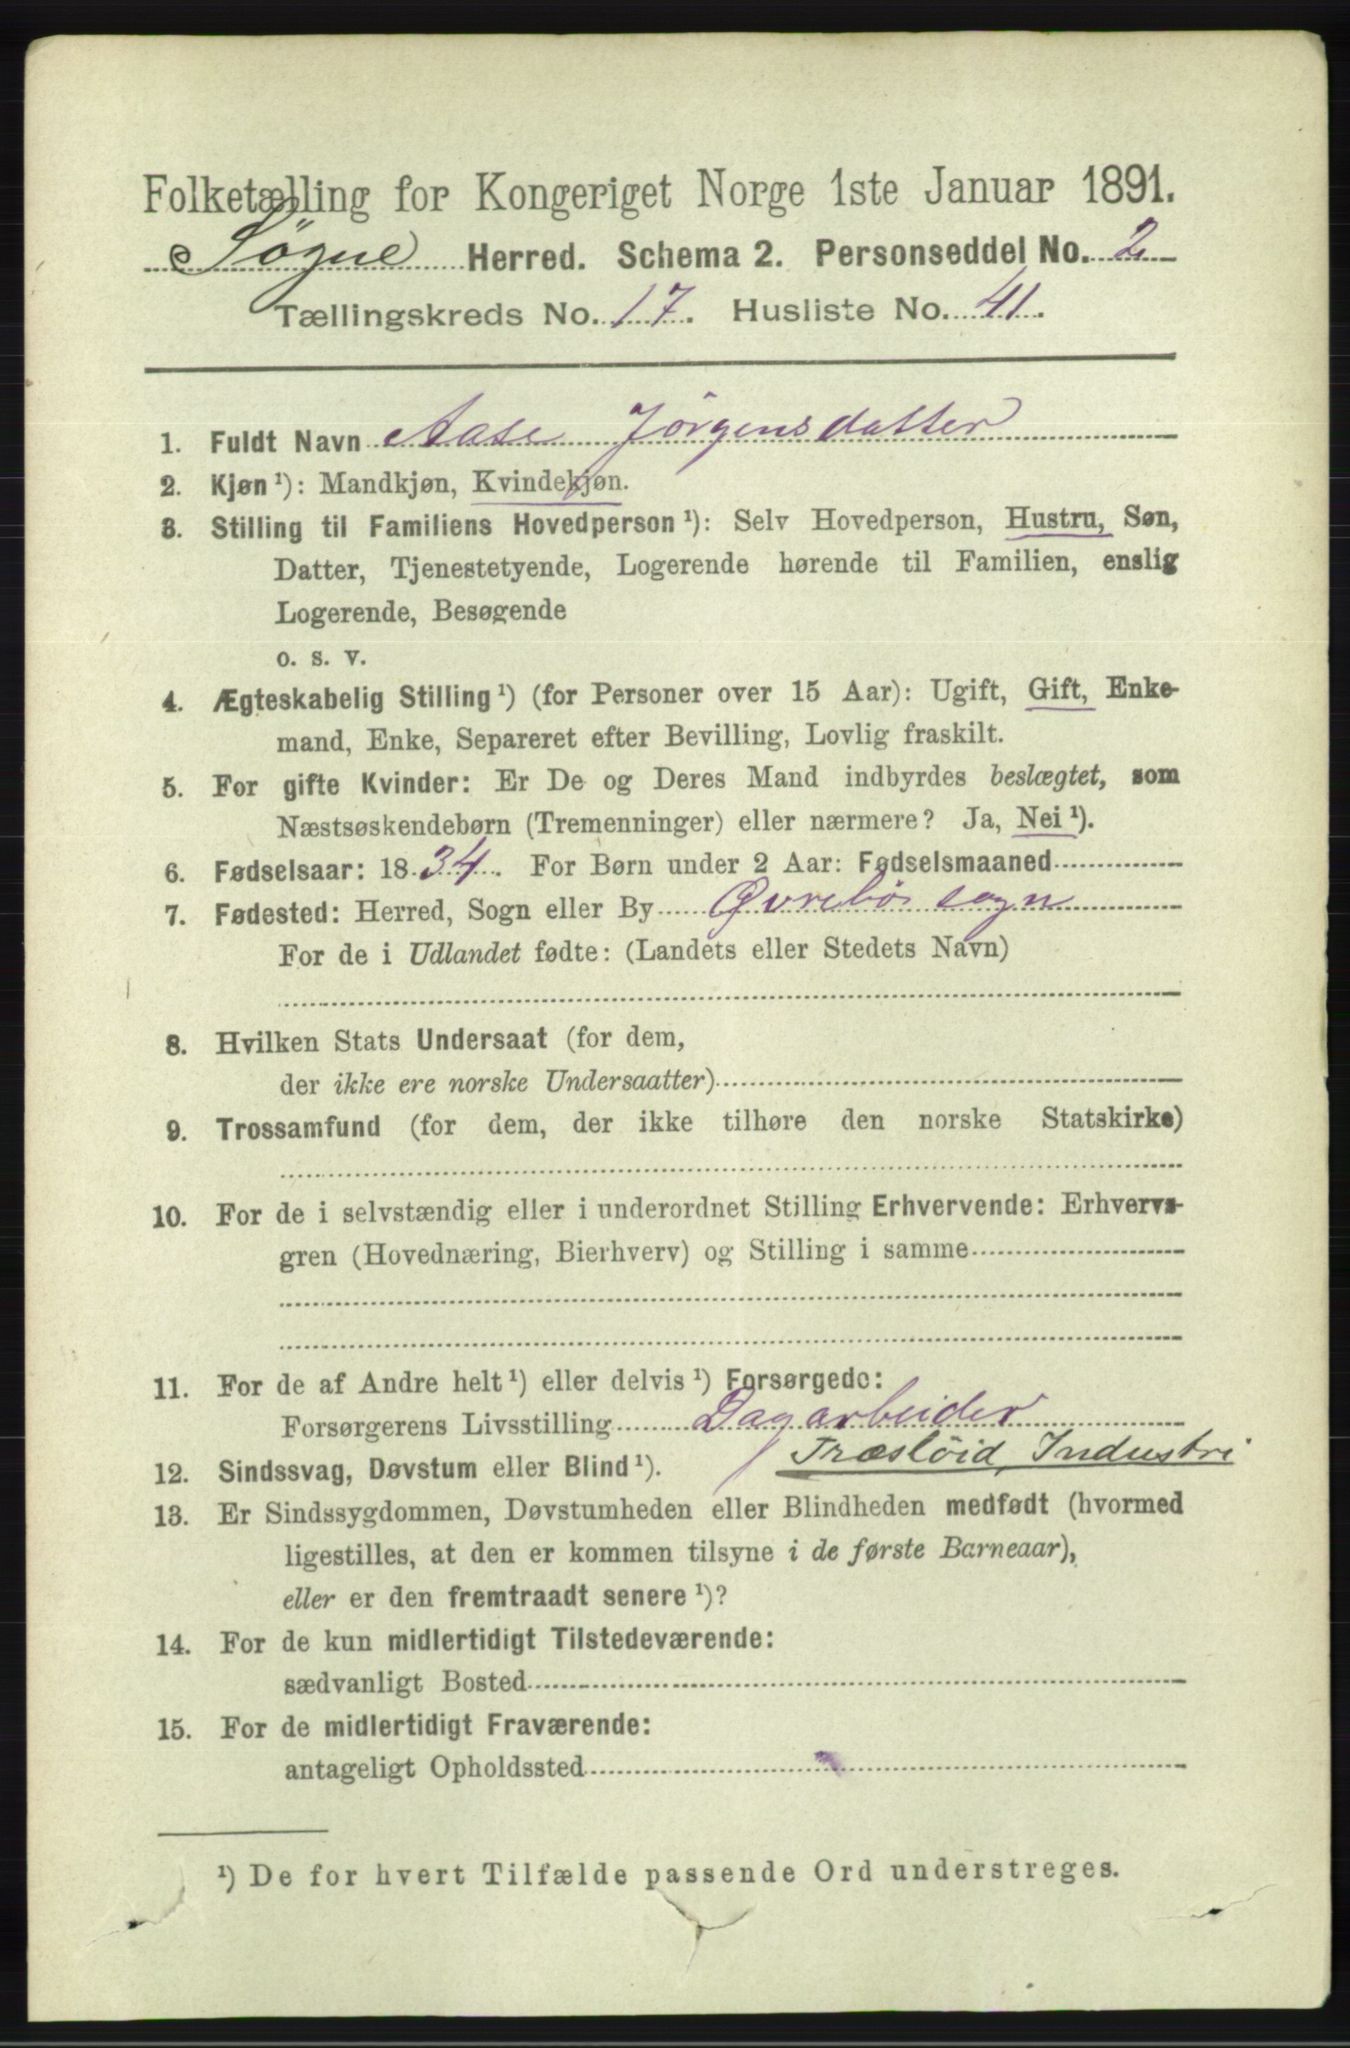 Folketælling for Kongeriget Norge 1ste Januar 1891.
Søgne Herred. Schema 2. Personseddel No. 2
Tællingskreds No. 17. Husliste No. 41.
1. Fuldt Navn Aase Jørgensdatter
2. Kjøn ¹): Mandkjøn, Kvindekjøn.
3. Stilling til Familiens Hovedperson ¹): Selv Hovedperson, Hustru, Søn,
Datter, Tjenestetyende, Logerende hørende til Familien, enslig
Logerende, Besøgende
o. s. v.
4. Ægteskabelig Stilling ¹) (for Personer over 15 Aar): Ugift, Gift, Enke-
mand, Enke, Separeret efter Bevilling, Lovlig fraskilt.
5. For gifte Kvinder: Er De og Deres Mand indbyrdes beslægtet, som
Næstsøskendebørn (Tremenninger) eller nærmere? Ja, Nei ¹).
6. Fødselsaar: 1834. For Børn under 2 Aar: Fødselsmaaned
7. Fødested: Herred, Sogn eller By Øvrebø sogn
For de i Udlandet fødte: (Landets eller Stedets Navn)
8. Hvilken Stats Undersaat (for dem,
der ikke ere norske Undersaatter)
9. Trossamfund (for dem, der ikke tilhøre den norske Statskirke)
10. For de i selvstændig eller i underordnet Stilling Erhvervende: Erhvervs-
gren (Hovednæring, Bierhverv) og Stilling i samme
11. For de af Andre helt ¹) eller delvis ¹) Forsørgede:
Forsørgerens Livsstilling Dagarbeider
12. Sindssvag, Døvstum eller Blind ¹). Træsløid, Industri
13. Er Sindssygdommen, Døvstumheden eller Blindheden medfødt (hvormed
ligestilles, at den er kommen tilsyne i de første Barneaar),
eller er den fremtraadt senere ¹)?
14. For de kun midlertidigt Tilstedeværende:
sædvanligt Bosted
15. For de midlertidigt Fraværende:
antageligt Opholdssted
¹) De for hvert Tilfælde passende Ord understreges.